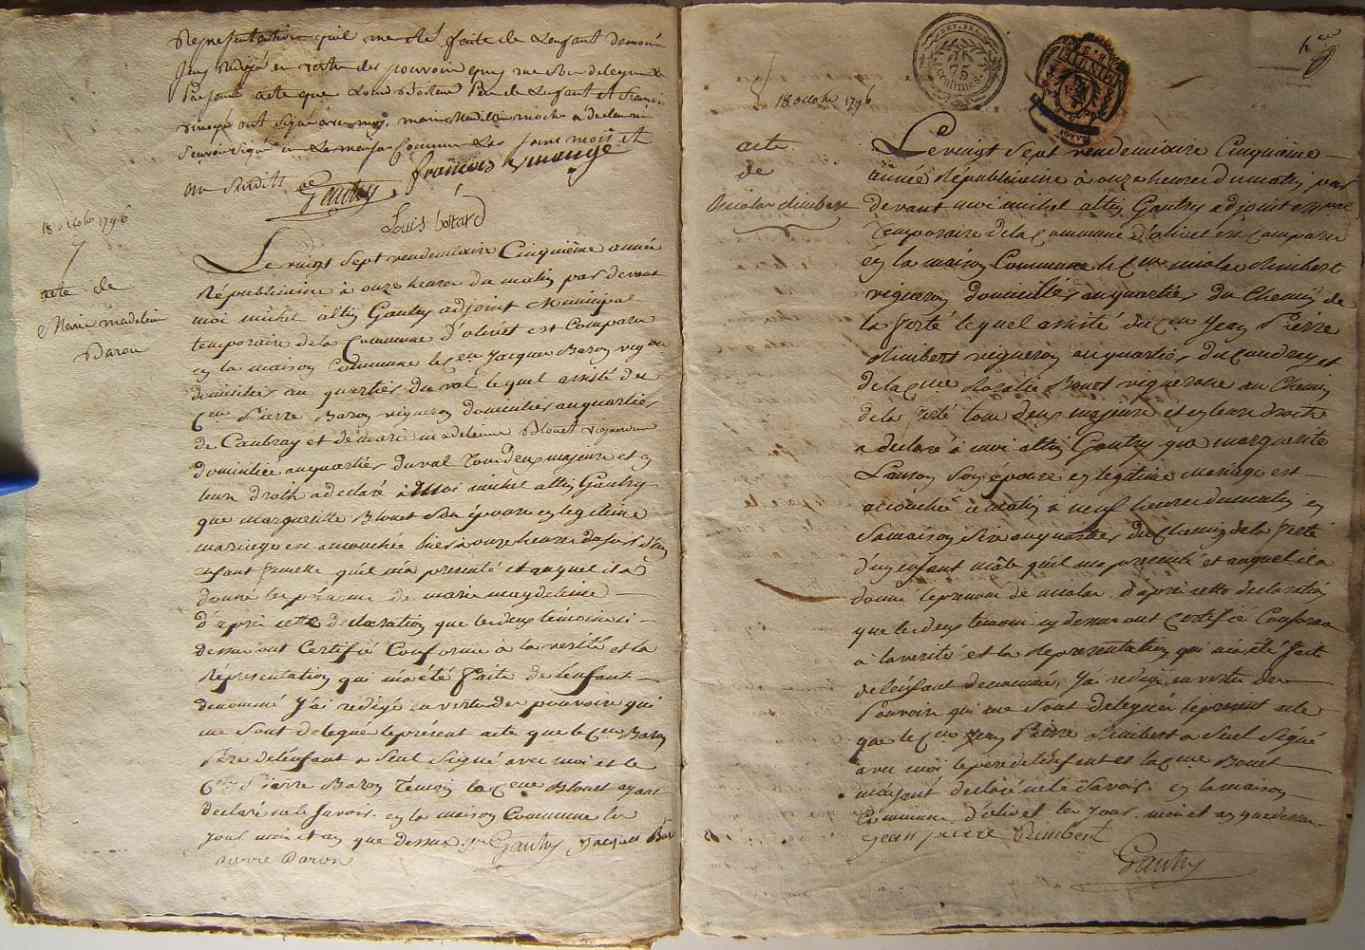 Representation qui me été faite de L'enfant denomé
J'ay redigé en vertu des pouvoirs qui me Son delegués
Présent acte que Louis Bottard Père de L'enfant et François
Vinauge ont signé avec moy, marie Madelaine a declaré ne
Savoir Signé en La maison Commune Les Jour mois et
an Susdits
Gautry françois Vinauge
Louis botard
18 octobre 1796
7
acte de
Marie madeleine
Baron
Le vingt Sept vendemiaire Cinquième année
Républicaine à onze heures du matin par devant
moi michel altin Gautry adjoint Municipal
temporaire de la Commune d'olivet est Comparu
en la maison Commune le Cen Jacques Baron vigron
domicilié au quartier du val lequel assisté du
Cen Pierre Baron vigneron domicilié au quartier
de Caubray et de marie madeleine Blouet vigneronne
domiciliée au quartier du val Tous deux majeurs et en
leurs droits a declaré à Moi michel altin Gautry
que marguerite Blouet Son épouse en legitime
mariage est accouchée hier à onze heures du soir d'un
enfant femelle qu'il m'a presenté et auquel il a
donné les prénoms de marie magdeleine
D'après cette déclaration que les deux témoins ci
dessus ont Certifié Conforme à la verité et la
Réprésentation qui m'a été faite de l'enfant
denommé J'ai redigé en vertu des pouvoirs qui
me Sont delegué le présent acte que le Cen Baron
Père de l'enfant a Seul Signé avec moi et le
Cen Pierre Baron Témoin la Cene Blouet ayant
declaré ne le Savoir. en la maison Commune les
Jour mois et an que dessus Gautry Jacques Bar
pierre Baron
18 octobre 1796
acte
de
Nicolas Rimbert
Le vingt Sept vendemiaire Cinquieme
année Républicaine à onze heures du matin par
devant moi michel altin Gautry adjoint
temporaire de la Commune d'olivet est Comparu
en la maison Commune le Cen nicolas Rimbert
vigneron domicilié au quartier du Chemin de
la ferté lequel assisté du Cen Jean Pierre
Rimbert vigneron au quartier du Caudray et
de la Cene Rosalie Bouet vigneronne au Chemin
de la ferté tous deux majeurs et en leurs droits
a declaré à moi altin Gautry que marguerite
Lanson Son épouse en legitime Mariage est
accouchée ce matin a neuf heures du matin en
Sa maison Sise au quartier du Chemin de la ferté
d'un enfant mâle qu'il m'a presenté et auquel il a
donné le prenom de nicolas. d'après cette declaration
que les deux temoins cy dessus ont Certifié Conforme
à la verité et la Representation qui m'a été faite
de l'enfant denommé, J'ai redigé en vertu des
Pouvoirs qui me Sont delegués le présent acte
que le Cen Jean Pierre Rimbert a Seul Signé
avec moi le pere de l'enfant et la Cene Bouet
m'ayant declaré ne le Savoir. en la maison
Commune d'olivet les Jour mois et an que dessus
Jean pierre Rimbert
Gautry